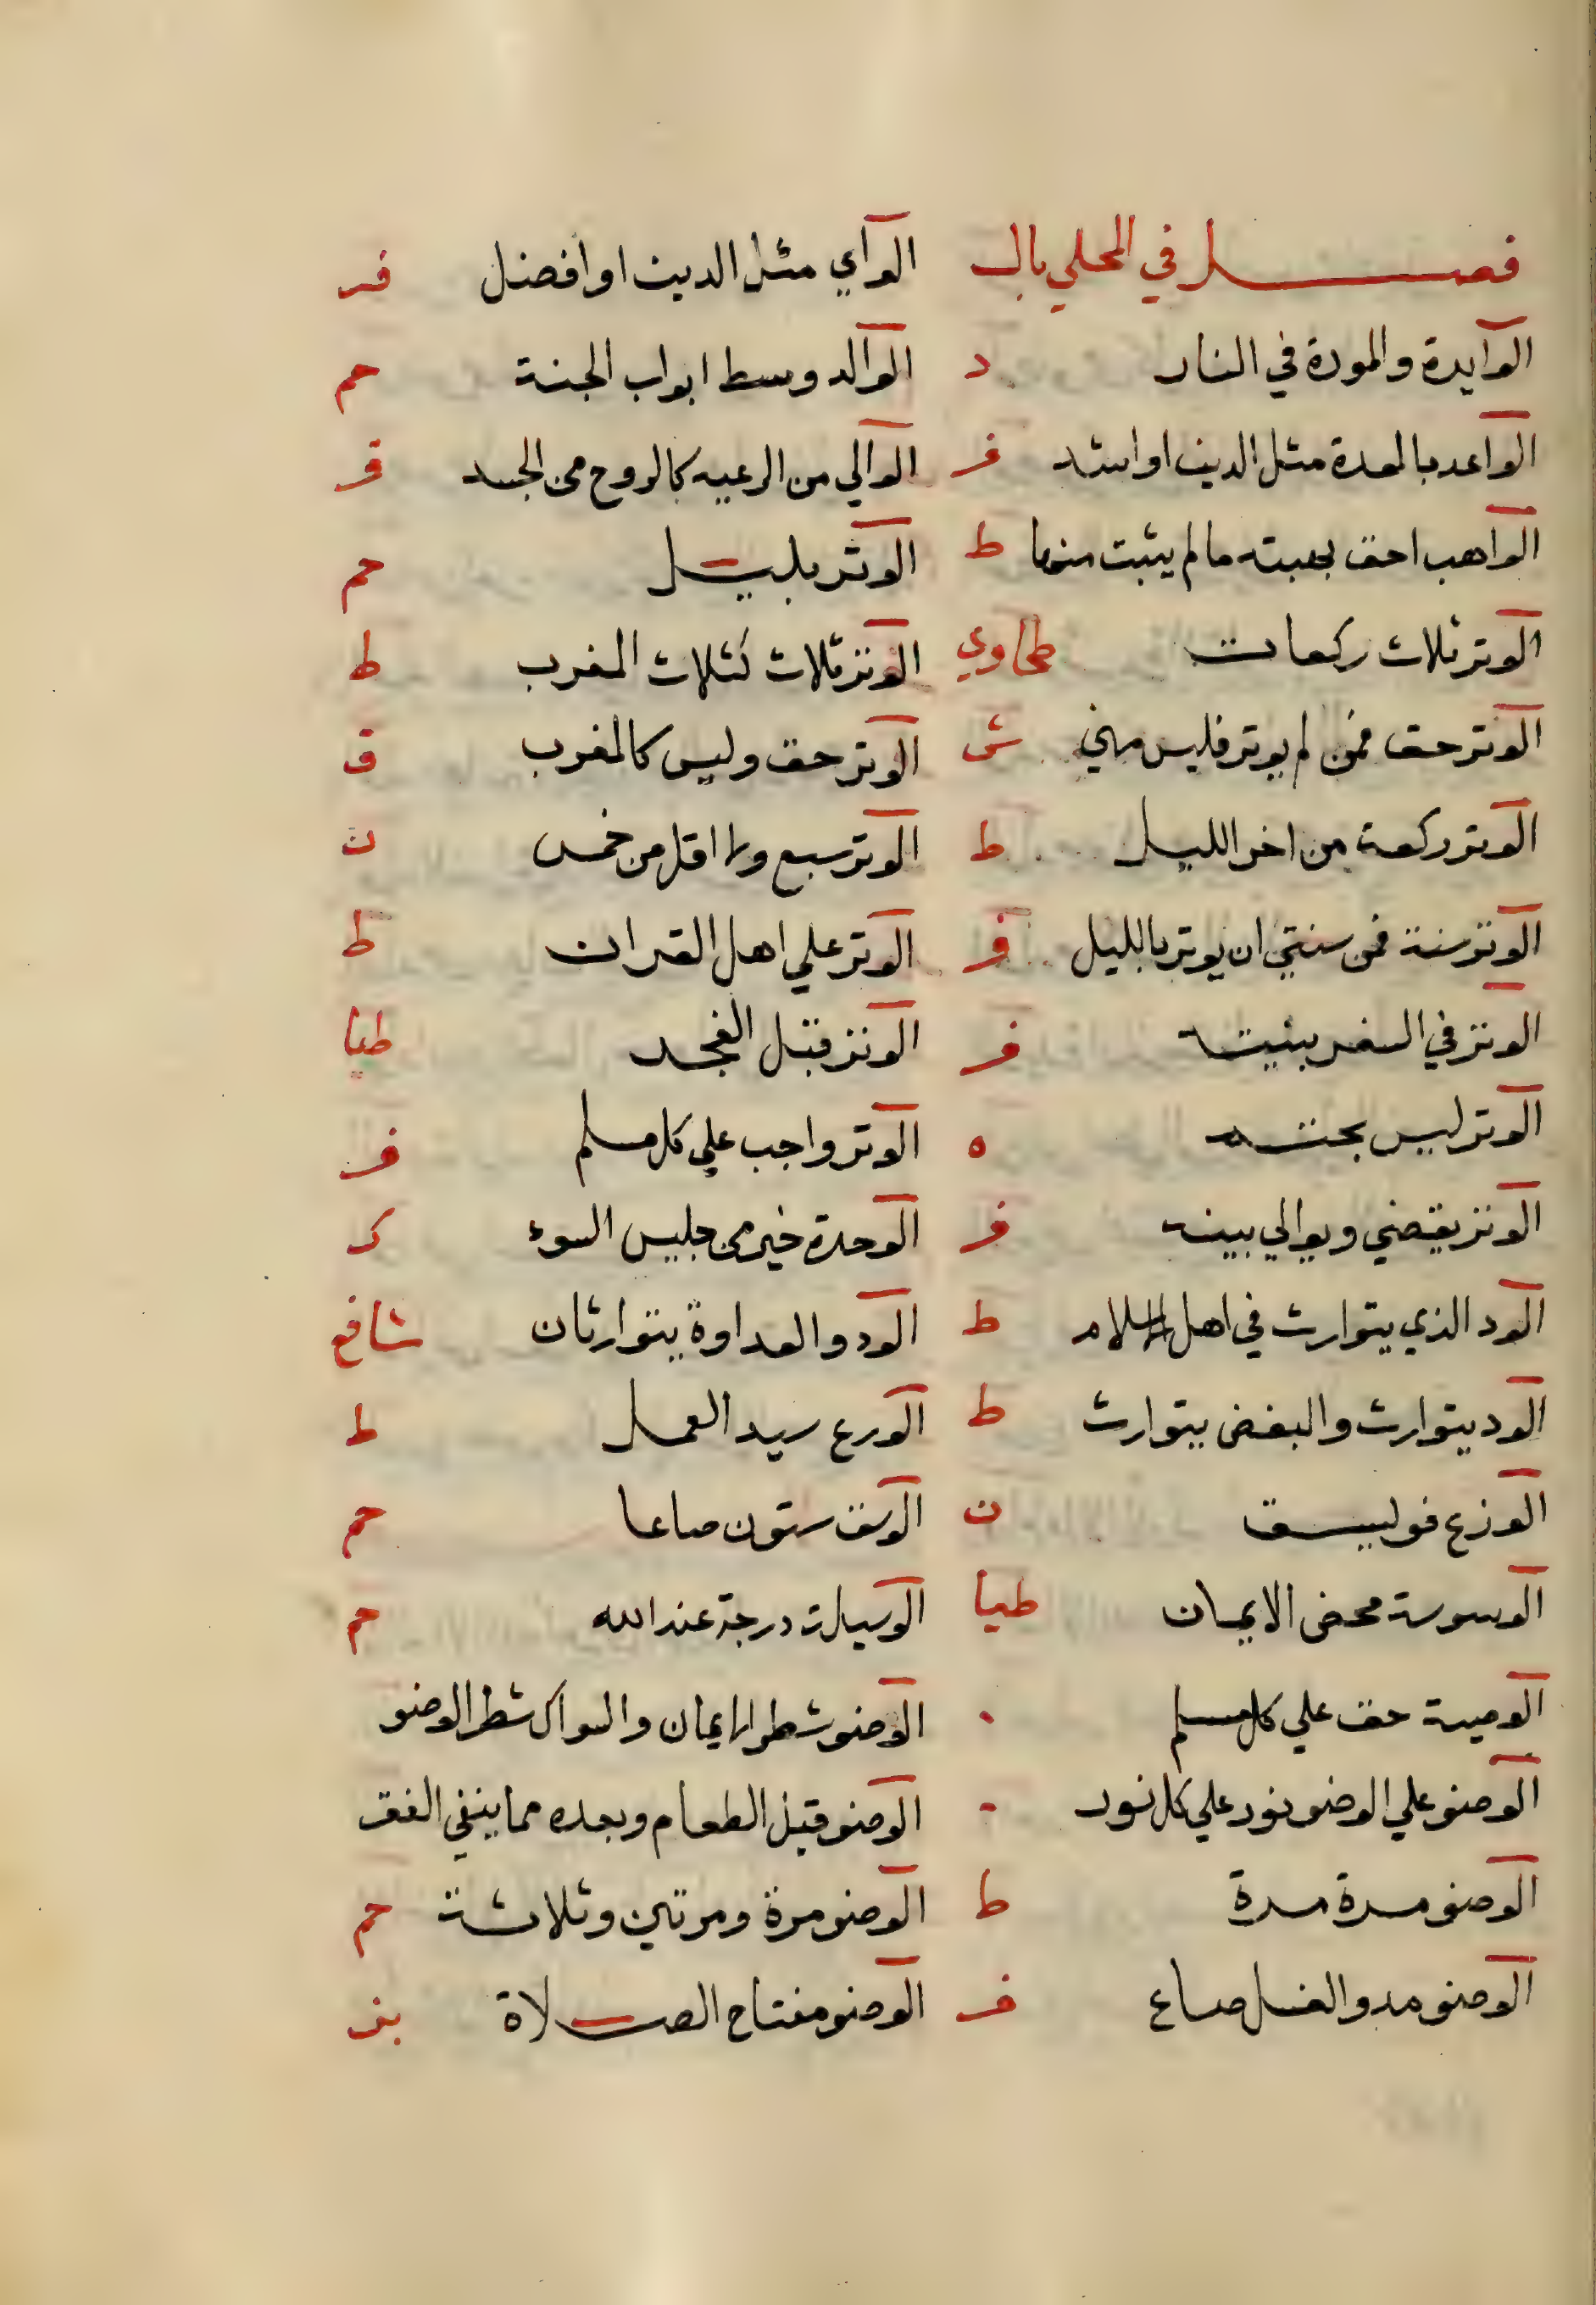 فصل في المحلي بال الوآي مثل الدين او افضل فر
الوايدة والمودة في النار د الوالد وسط ابواب الجنة حم
الواعد بالعدة مثل الدين او اشد فر الوالي من الرعيه كالروح من الجسد فر
الواهب احق بهبته ما لم يثبت منها ط الوتر بليل حم
الوتر ثلاث ركعات طحاوي الوتر ثلاث كثلاث المغرب ط
الوتر حق فمن لم يوتر فليس مني ش الوتر حق وليس كالمغرب ق
الوتر ركعة من اخر الليل ط الوتر سبع ولا اقل من خمس ن
الوتر سنة فمن سنتي ان يوتر بالليل فر الوتر علي اهل القران ط
الوتر في السفر فر الوتر قبل الفجر طيا
الوتر ليس ه الوتر واجب علي كل مسلم فر
الوتر يقضي ويوالي بينه فر الوحدة خير من جليس السوء ك
الود الذي يتوارث في اهل الاسلام ط الود والعداوة يتوارثان شافع
الود يتوارث والبغض يتوارث ط الورع سيد العمل ط
الوزع فوليسق ن الوسق ستون صاعا حم
الوسوسة محض الايمان طيا الوسيلة درجة عند الله حم
الوصية حق علي كل مسلم الوضو شطر الايمان والسواك شطر الوضو
الوضو علي الوضو نور علي كل نور الوضو قبل الطعام وبعده مما ينفي الفقر
الوضو مرة مرة ط الوضو مرة ومرتين وثلاثة حم
الوضو مد والغسل صاع فر الوضو مفتاح الصلاة بز